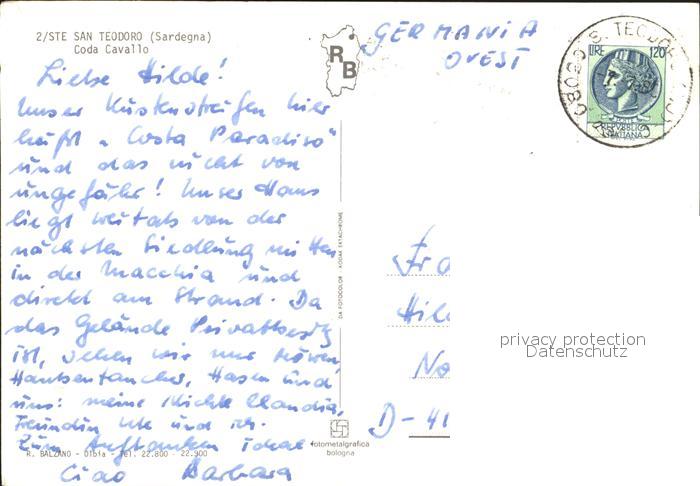 2/STE SAN TEODORO (Sardegna)
Coda Cavallo
RB
GERMANIA
OVEST
LIRE 120
REPUBBLICA
ITALIANA
Liebe Hilde!
Unser Küstenstreifen hier
heißt "Costa Paradiso"
und das nicht von
ungefähr! Unser Haus
liegt weitab von der
nächsten Siedlung mitten
in der Macchia und
direkt am Strand. Da
das Gelände Privatbesitz
ist, sehen wir nur Möwen,
Haubentaucher, Hasen und
uns: meine Nichte Claudia,
Freundin Ute und ich.
Zum Auftanken ideal
Ciao Barbara
R. BALZANO - Olbia - Tel. 22.800 - 22.900
DA FOTOCOLOR KODAK EKTACHROME
fotometalgrafica
bologna
Fra
Hil
No
D-41
privacy protection
Datenschutz